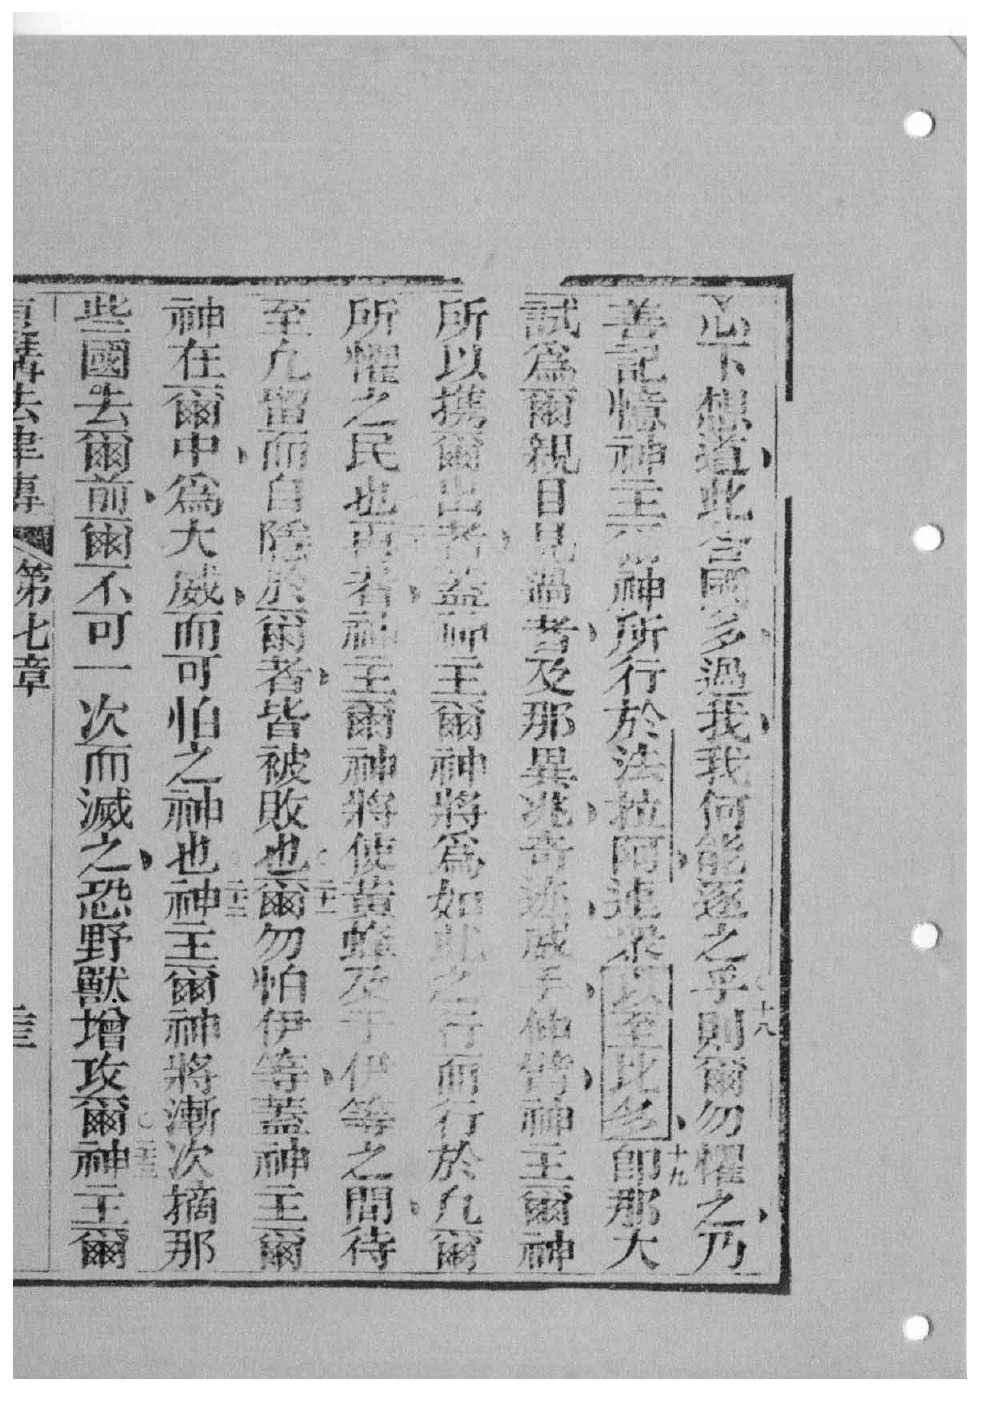 心下想道此各國多過我我何能逐之乎十八則爾勿懼之乃
善記憶神主爾神所行於法拉阿連眾以至此多十九即那大
試為爾親目見過者及那異兆奇迹威手伸臂神主爾神
所以携爾出者蓋神主爾神將為如此之行而行於凢爾
所懼之民也二十再者神主爾神將使黃蜂及于伊等之間待
至凢留而自隱於爾者皆被敗也二十一爾勿怕伊等蓋神主爾
神在爾中為大威而可怕之神也二十二神主爾神將漸次摘那
些國去爾前爾不可一次而滅之恐野獸增攻爾二十三神主爾
復講法律傳 第七章 二三